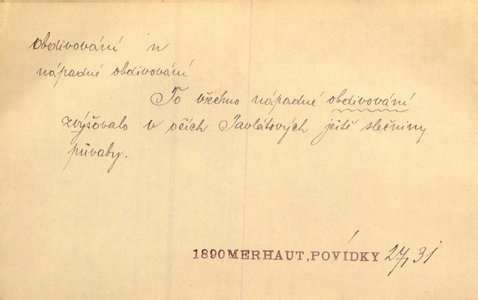 obdivování n
nápadné obdivování
To všechno nápadné obdivování
zvyšovalo v očích Pavlátových ještě slečniny
půvaby.
1890 MERHAUT, POVÍDKY 27, 31